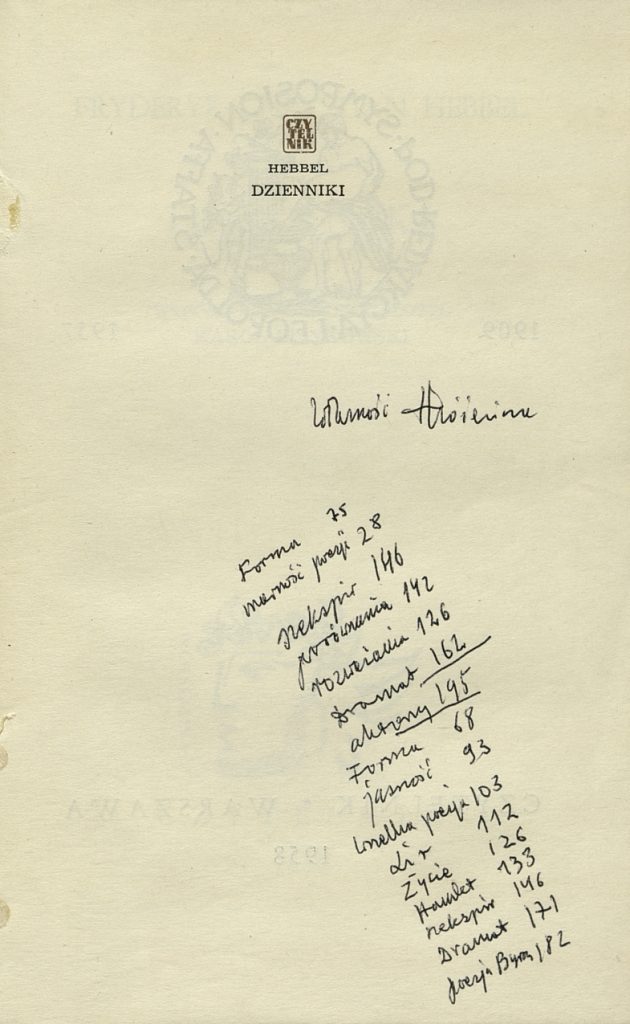 CZY
TEL
NIK
HEBBEL
DZIENNIKI
Własność
Forma 75
marność poezji 28
Szekspir 146
porównania 142
rozważania 126
Dramat 162
aktorzy 195
Forma 68
jasność 93
wielka poezja 103
Lir 112
Życie 126
Hamlet 133
Szekspir 146
Dramat 171
poezja Byron 182